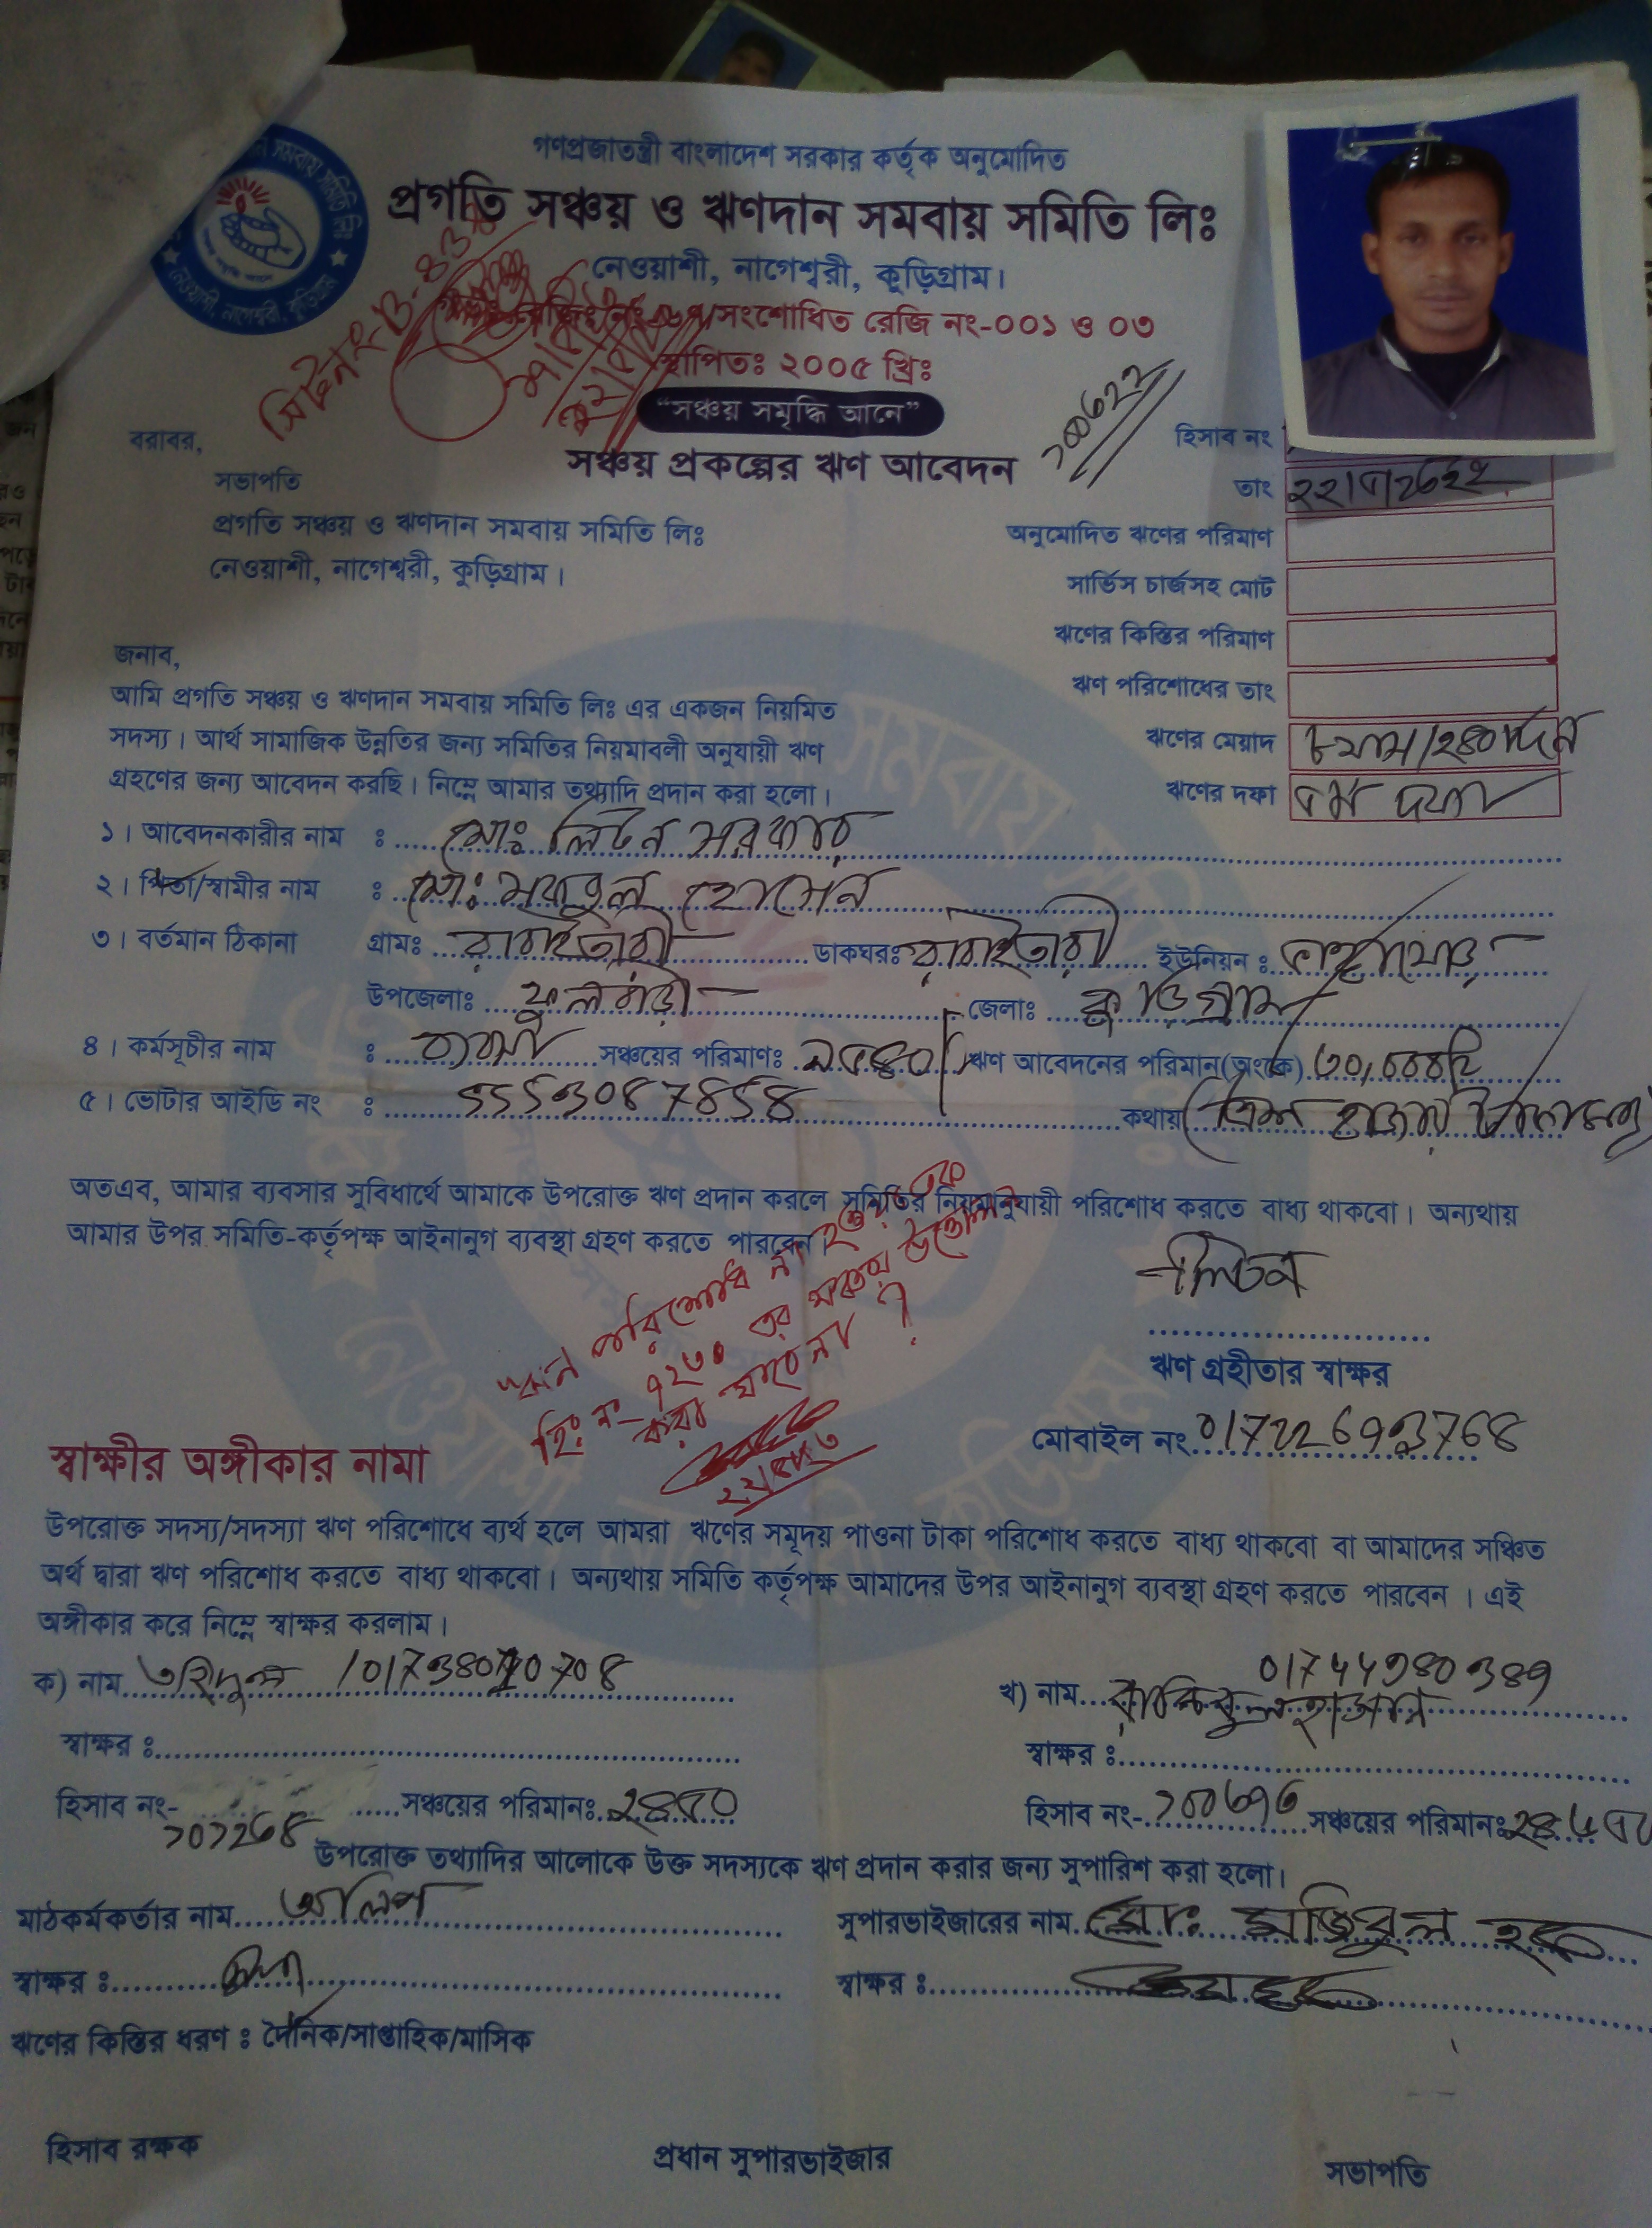 গণপ্রজাতন্ত্রী বাংলাদেশ সরকার কর্তৃক অনুমোদিত
প্রগতি সঞ্চয় ও ঋণদান সমবায় সমিতি লিঃ
নেওয়াশী, নাগেশ্বরী, কুড়িগ্রাম।
সংশোধিত রেজি নং-০০১ ও ০৩
স্থাপিতঃ ২০০৫ খ্রিঃ
"সঞ্চয় সমৃদ্ধি আনে"
সঞ্চয় প্রকল্পের ঋণ আবেদন
১০০৬২২
হিসাব নং
তাং
বরাবর,
সভাপতি
প্রগতি সঞ্চয় ও ঋণদান সমবায় সমিতি লিঃ
নেওয়াশী, নাগেশ্বরী, কুড়িগ্রাম।
অনুমোদিত ঋণের পরিমাণ
সার্ভিস চার্জসহ মোট
ঋণের কিস্তির পরিমাণ
ঋণ পরিশোধের তাং
ঋণের মেয়াদ ৮মাস/২৪০দিন
ঋণের দফা ৫ম দফা
জনাব,
আমি প্রগতি সঞ্চয় ও ঋণদান সমবায় সমিতি লিঃ এর একজন নিয়মিত
সদস্য। আর্থ সামাজিক উন্নতির জন্য সমিতির নিয়মাবলী অনুযায়ী ঋণ
গ্রহণের জন্য আবেদন করছি। নিম্নে আমার তথ্যাদি প্রদান করা হলো।
১। আবেদনকারীর নাম : মোঃ লিটন সরকার
২। পিতা/স্বামীর নাম : মোঃ হোসেন
৩। বর্তমান ঠিকানা গ্রামঃ রাবাইতারী ডাকঘরঃ রাবাইতারী ইউনিয়ন :
উপজেলাঃ ফুলবাড়ী জেলাঃ কুড়িগ্রাম
৪। কর্মসূচীর নাম : ব্যবসা সঞ্চয়ের পরিমাণঃ ঋণ আবেদনের পরিমান(অংকে) ৩০,০০০/=
৫। ভোটার আইডি নং : 5553087858 কথায় (ত্রিশ হাজার টাকা মাত্র)
অতএব, আমার ব্যবসার সুবিধার্থে আমাকে উপরোক্ত ঋণ প্রদান করলে সমিতির নিয়মানুযায়ী পরিশোধ করতে বাধ্য থাকবো। অন্যথায়
আমার উপর সমিতি-কর্তৃপক্ষ আইনানুগ ব্যবস্থা গ্রহণ করতে পারবেন।
লিটন
ঋণ গ্রহীতার স্বাক্ষর
ঋন পরিশোধ না হওয়া তক
হিঃ নং- ৭২৩০ এর সঞ্চয় উত্তোলন
করা যাবে না।
মোবাইল নং
স্বাক্ষীর অঙ্গীকার নামা
উপরোক্ত সদস্য/সদস্যা ঋণ পরিশোধে ব্যর্থ হলে আমরা ঋণের সমূদয় পাওনা টাকা পরিশোধ করতে বাধ্য থাকবো বা আমাদের সঞ্চিত
অর্থ দ্বারা ঋণ পরিশোধ করতে বাধ্য থাকবো। অন্যথায় সমিতি কর্তৃপক্ষ আমাদের উপর আইনানুগ ব্যবস্থা গ্রহণ করতে পারবেন । এই
অঙ্গীকার করে নিম্নে স্বাক্ষর করলাম।
ক) নাম
খ) নাম রাকিবুল হাসান 01744980389
স্বাক্ষর :
স্বাক্ষর :
হিসাব নং- ১০১২৬৪ সঞ্চয়ের পরিমানঃ
হিসাব নং- ১০০৬৭৩ সঞ্চয়ের পরিমানঃ
উপরোক্ত তথ্যাদির আলোকে উক্ত সদস্যকে ঋণ প্রদান করার জন্য সুপারিশ করা হলো।
মাঠকর্মকর্তার নাম
সুপারভাইজারের নাম মোঃ মজিবুল হক
স্বাক্ষর :
স্বাক্ষর :
ঋণের কিস্তির ধরণ : দৈনিক/সাপ্তাহিক/মাসিক
হিসাব রক্ষক
প্রধান সুপারভাইজার
সভাপতি